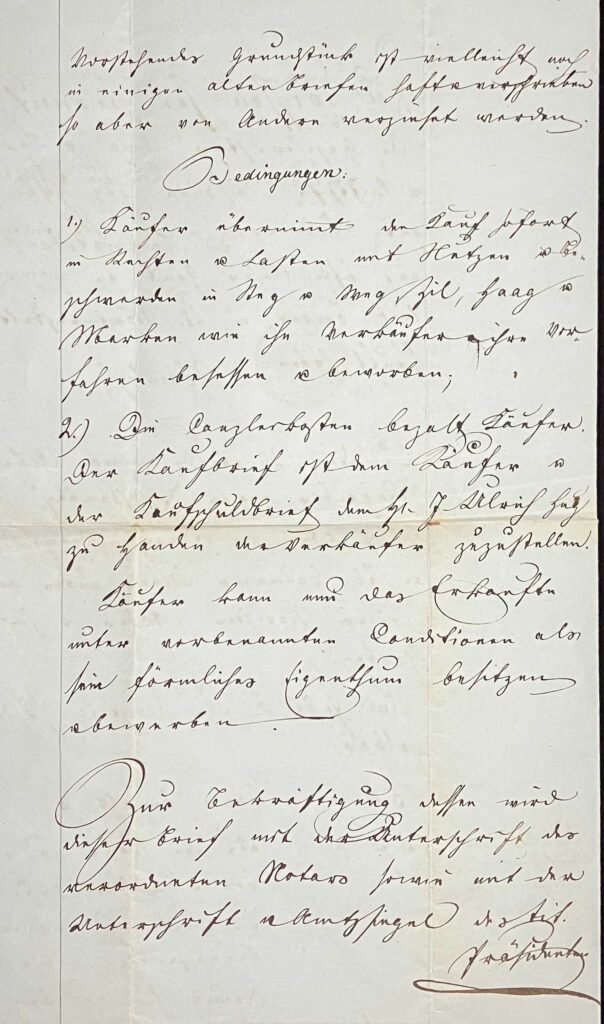 Vorstehendes Grundstück ist vielleicht noch
in einigen alten Briefen haft u verschrieben
so aber von Andere verzinset werden.
Bedingungen:
1.) Käufer übernimmt den Kauf sofort
in Rechten u Lasten mit Nutzen u Be-
schwerden in Steg u Weg, Zil, Haag u
Marken wie ihn Verkäufer u ihre Vor-
fahren besessen u beworben;
2.) Die Canzleikosten bezalt Käufer.
Der Kaufbrief ist dem Käufer u
der Kaufschuldbrief dem H. J Ulrich
zu Handen der Verkäufer zuzustellen.
Käufer kann nun das Erkaufte
unter vorbenannten Conditionen als
sein förmliches Eigenthum besitzen
u bewerben
Zur Bekräftigung dessen wird
dieser Brief mit der Unterschrift des
verordneten Notars sowie mit der
Unterschrift u Amtssigel des Tit.
Präsidenten